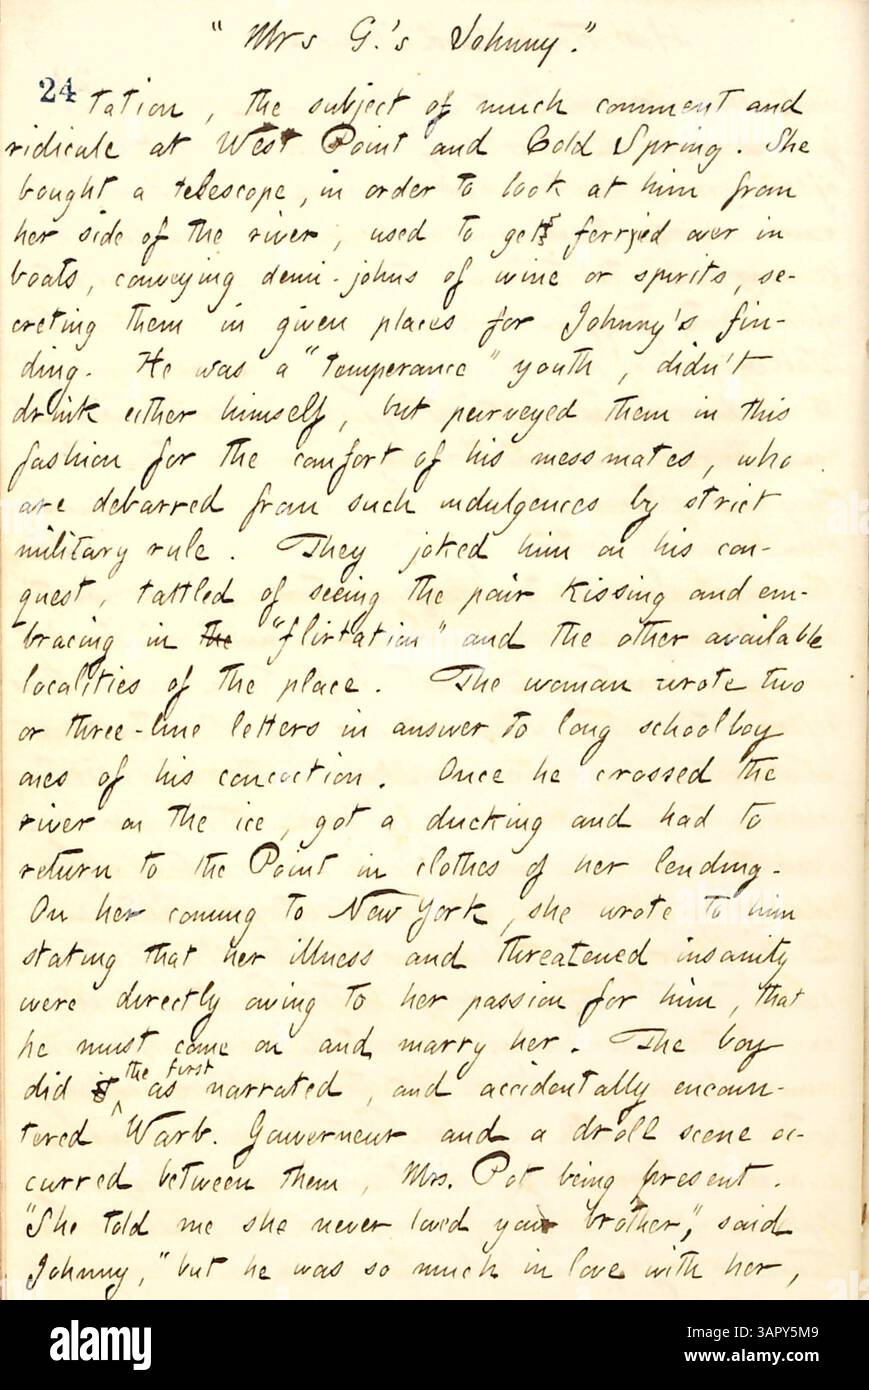 "Mrs G.'s Johnny."
24
tation, the subject of much comment and
ridicule at West Point and Cold Spring. She
bought a telescope, in order to look at him from
her side of the river, used to get ferried over in
boats, conveying demi-johns of wine or spirits, se-
creting them in given places for Johnny's fin-
ding. He was a "temperance" youth, didn't
drink either himself, but purveyed them in this
fashion for the comfort of his messmates, who
are debarred from such indulgences by strict
military rule. They joked him on his con-
quest, tattled of seeing the pair kissing and em-
bracing in the "flirtation" and the other available
localities of the place. The woman wrote two
or three-line letters in answer to long schoolboy
ones of his concoction. Once he crossed the
river on the ice, got a ducking and had to
return to the Point in clothes of her lending.
On her coming to New York, she wrote to him
stating that her illness and threatened insanity
were directly owing to her passion for him, that
he must come on and marry her. The boy
did the first as narrated, and accidentally encoun-
tered Warb. Gouverneur and a droll scene oc-
curred between them, Mrs. Pot being present.
"She told me she never loved your brother," said
Johnny, "but he was so much in love with her,
alamy
Image ID: 3APY5M9
www.alamy.com